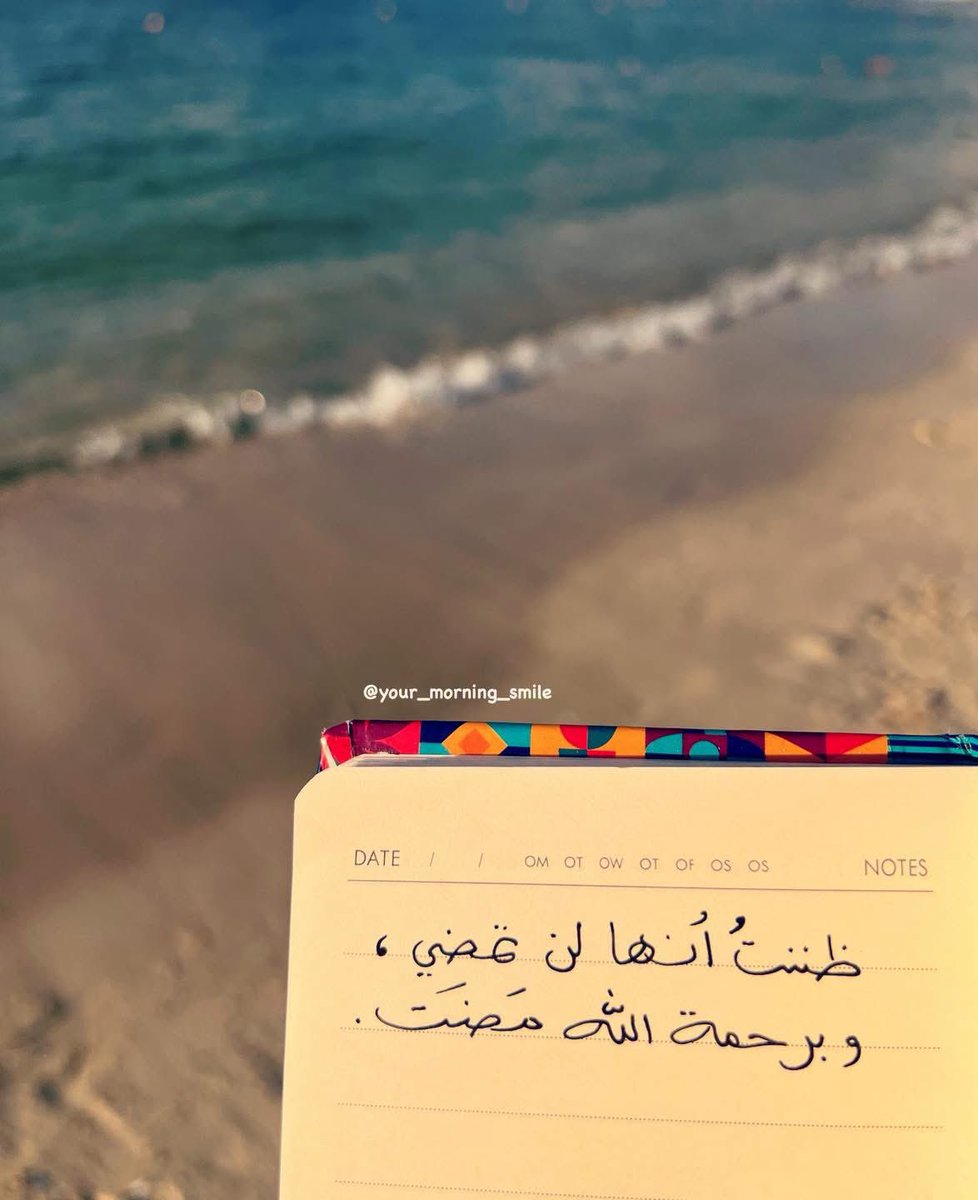 @your_morning_smile
DATE / / OM OT OW OT OF OS OS NOTES
ظننتُ أنها لن تمضي ،
وبرحمة الله مَضَت .